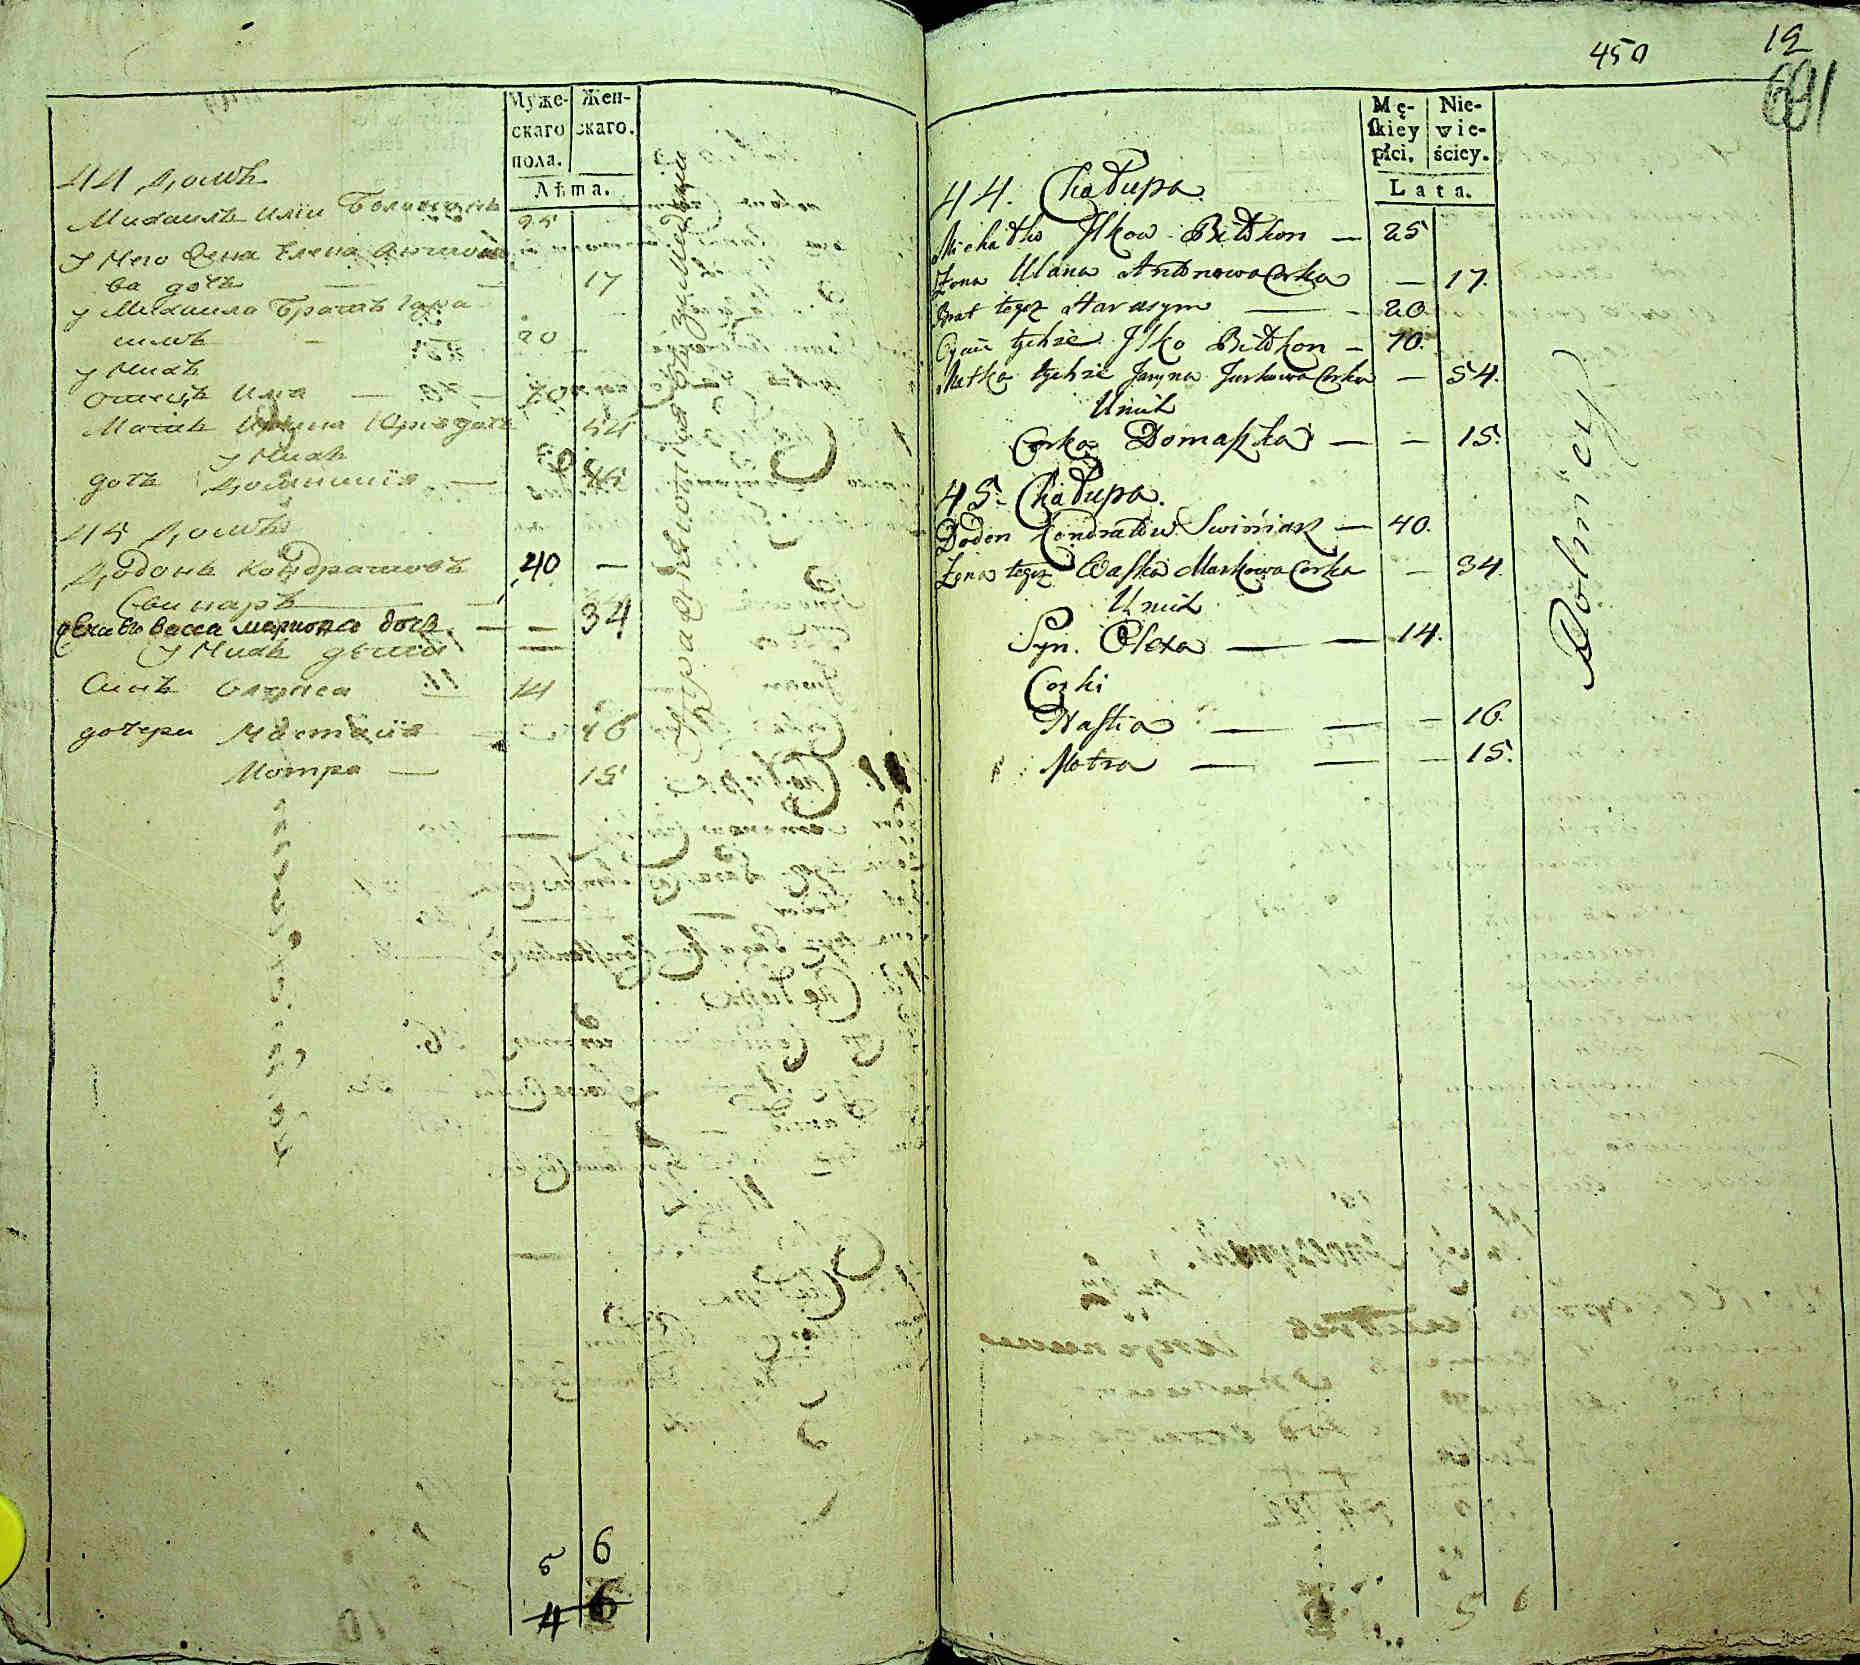 Муже-
скаго
пола.
Жен-
скаго.
Лѣта.
44 Домъ
Михаилъ Илїи 25
у Него Жена Елена
ва дочь — — 17
у Михаила Братъ Гара
симъ — 20
у Нихъ
Отецъ Илїа — 70
Матъ Ирина Юрїѧ дочь 54
у Нихъ
дочъ Доминикїа — 15
45 Домъ
Додонъ Кондратовъ 40 —
Свинаръ
Жена Его Васса Маркова дочь — — 34
у Нихъ дети
Синъ Олекса 14
дочери Настасїѧ — 16
Мотра — 15
5 6
4 6
450
12
691
Mę-
ſkiey
płci.
Nie-
wie-
ściey.
Lata.
44. Chałupa
Michałko Ilkow Biłkon — 25
Żona Ulana Antonowa Corka — 17.
Brat tegoż Harasym — 20.
Oyciec tychże Ilko Biłkon — 70.
Matka tychże Jaryna Jurkowa Corka — 54.
U nich
Corka Domaſzka — — 15.
45. Chałupa.
Dodon Kondratow Swiniarz — 40.
Żona tegoż Waſka Markowa Corka — 34.
U nich
Syn. Olexa — — 14.
Corki
Naſtia — — — 16.
Motra — — — 15.
Rolniey
5 6